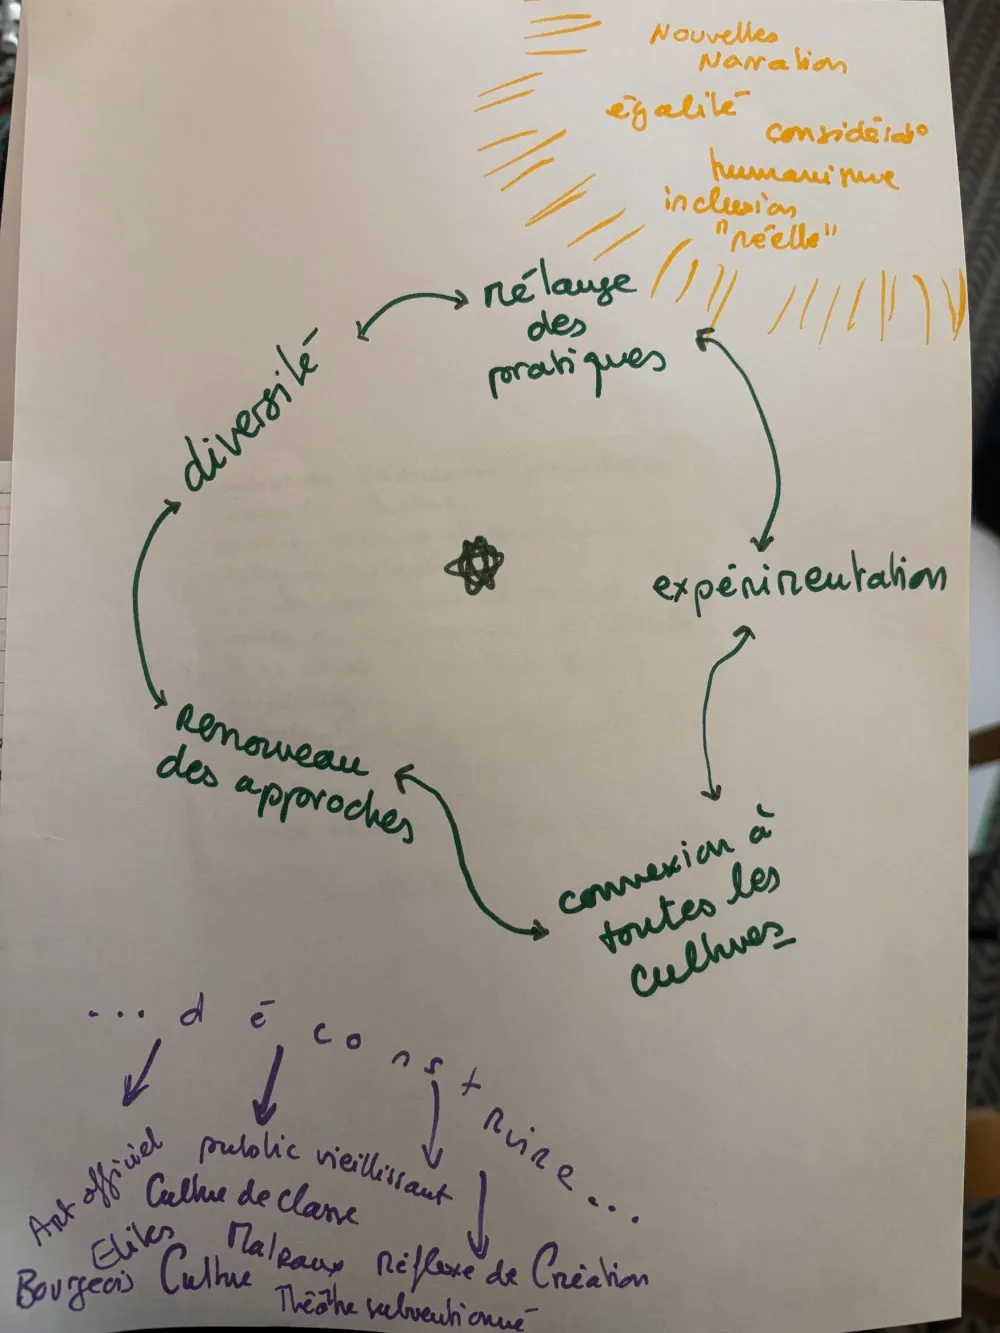 Nouvelles
Narration
égalité
considérat°
humanisme
inclusion
"réelle"
Mélange
des
pratiques
diversité
expérimentation
renouveau
des approches
connexion à
toutes les
cultures
... déconstruire ...
Art officiel
public vieillissant
Culture de classe
Elites
Malraux
Réflexe de Création
Bourgeois
Culture
Théâtre subventionné